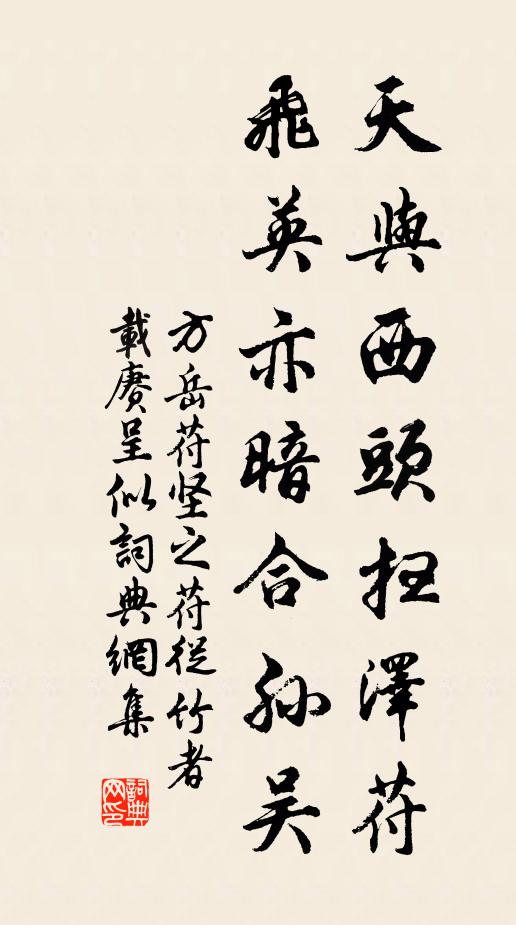 天與西頭枉澤苻
飛英亦暗合孙吴
方岳苻坚之苻從竹者
載賡呈似詞典網集
詞典
网印